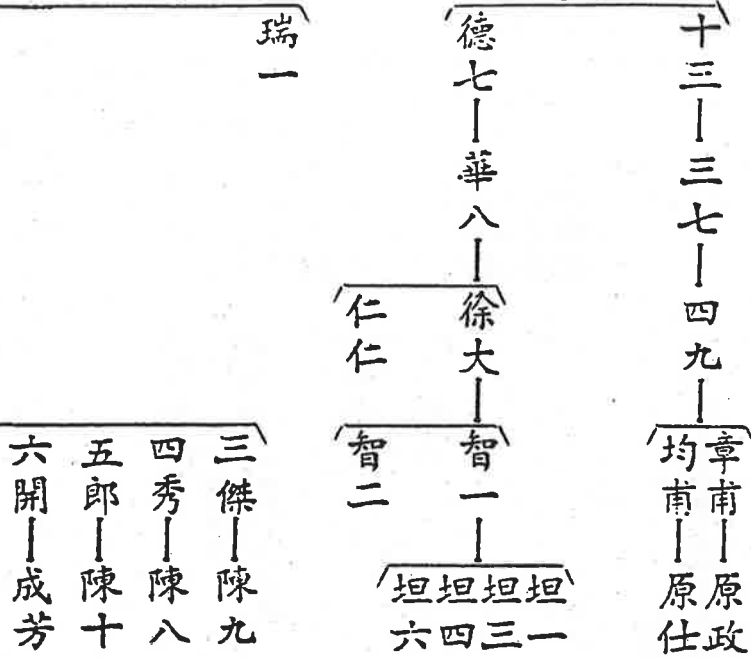 十三
三七
四九
章甫
原政
均甫
原仕
德七
華八
徐大
智一
坦一
坦三
坦四
坦六
智二
仁仁
瑞一
三傑
陳九
四秀
陳八
五郎
陳十
六開
成芳